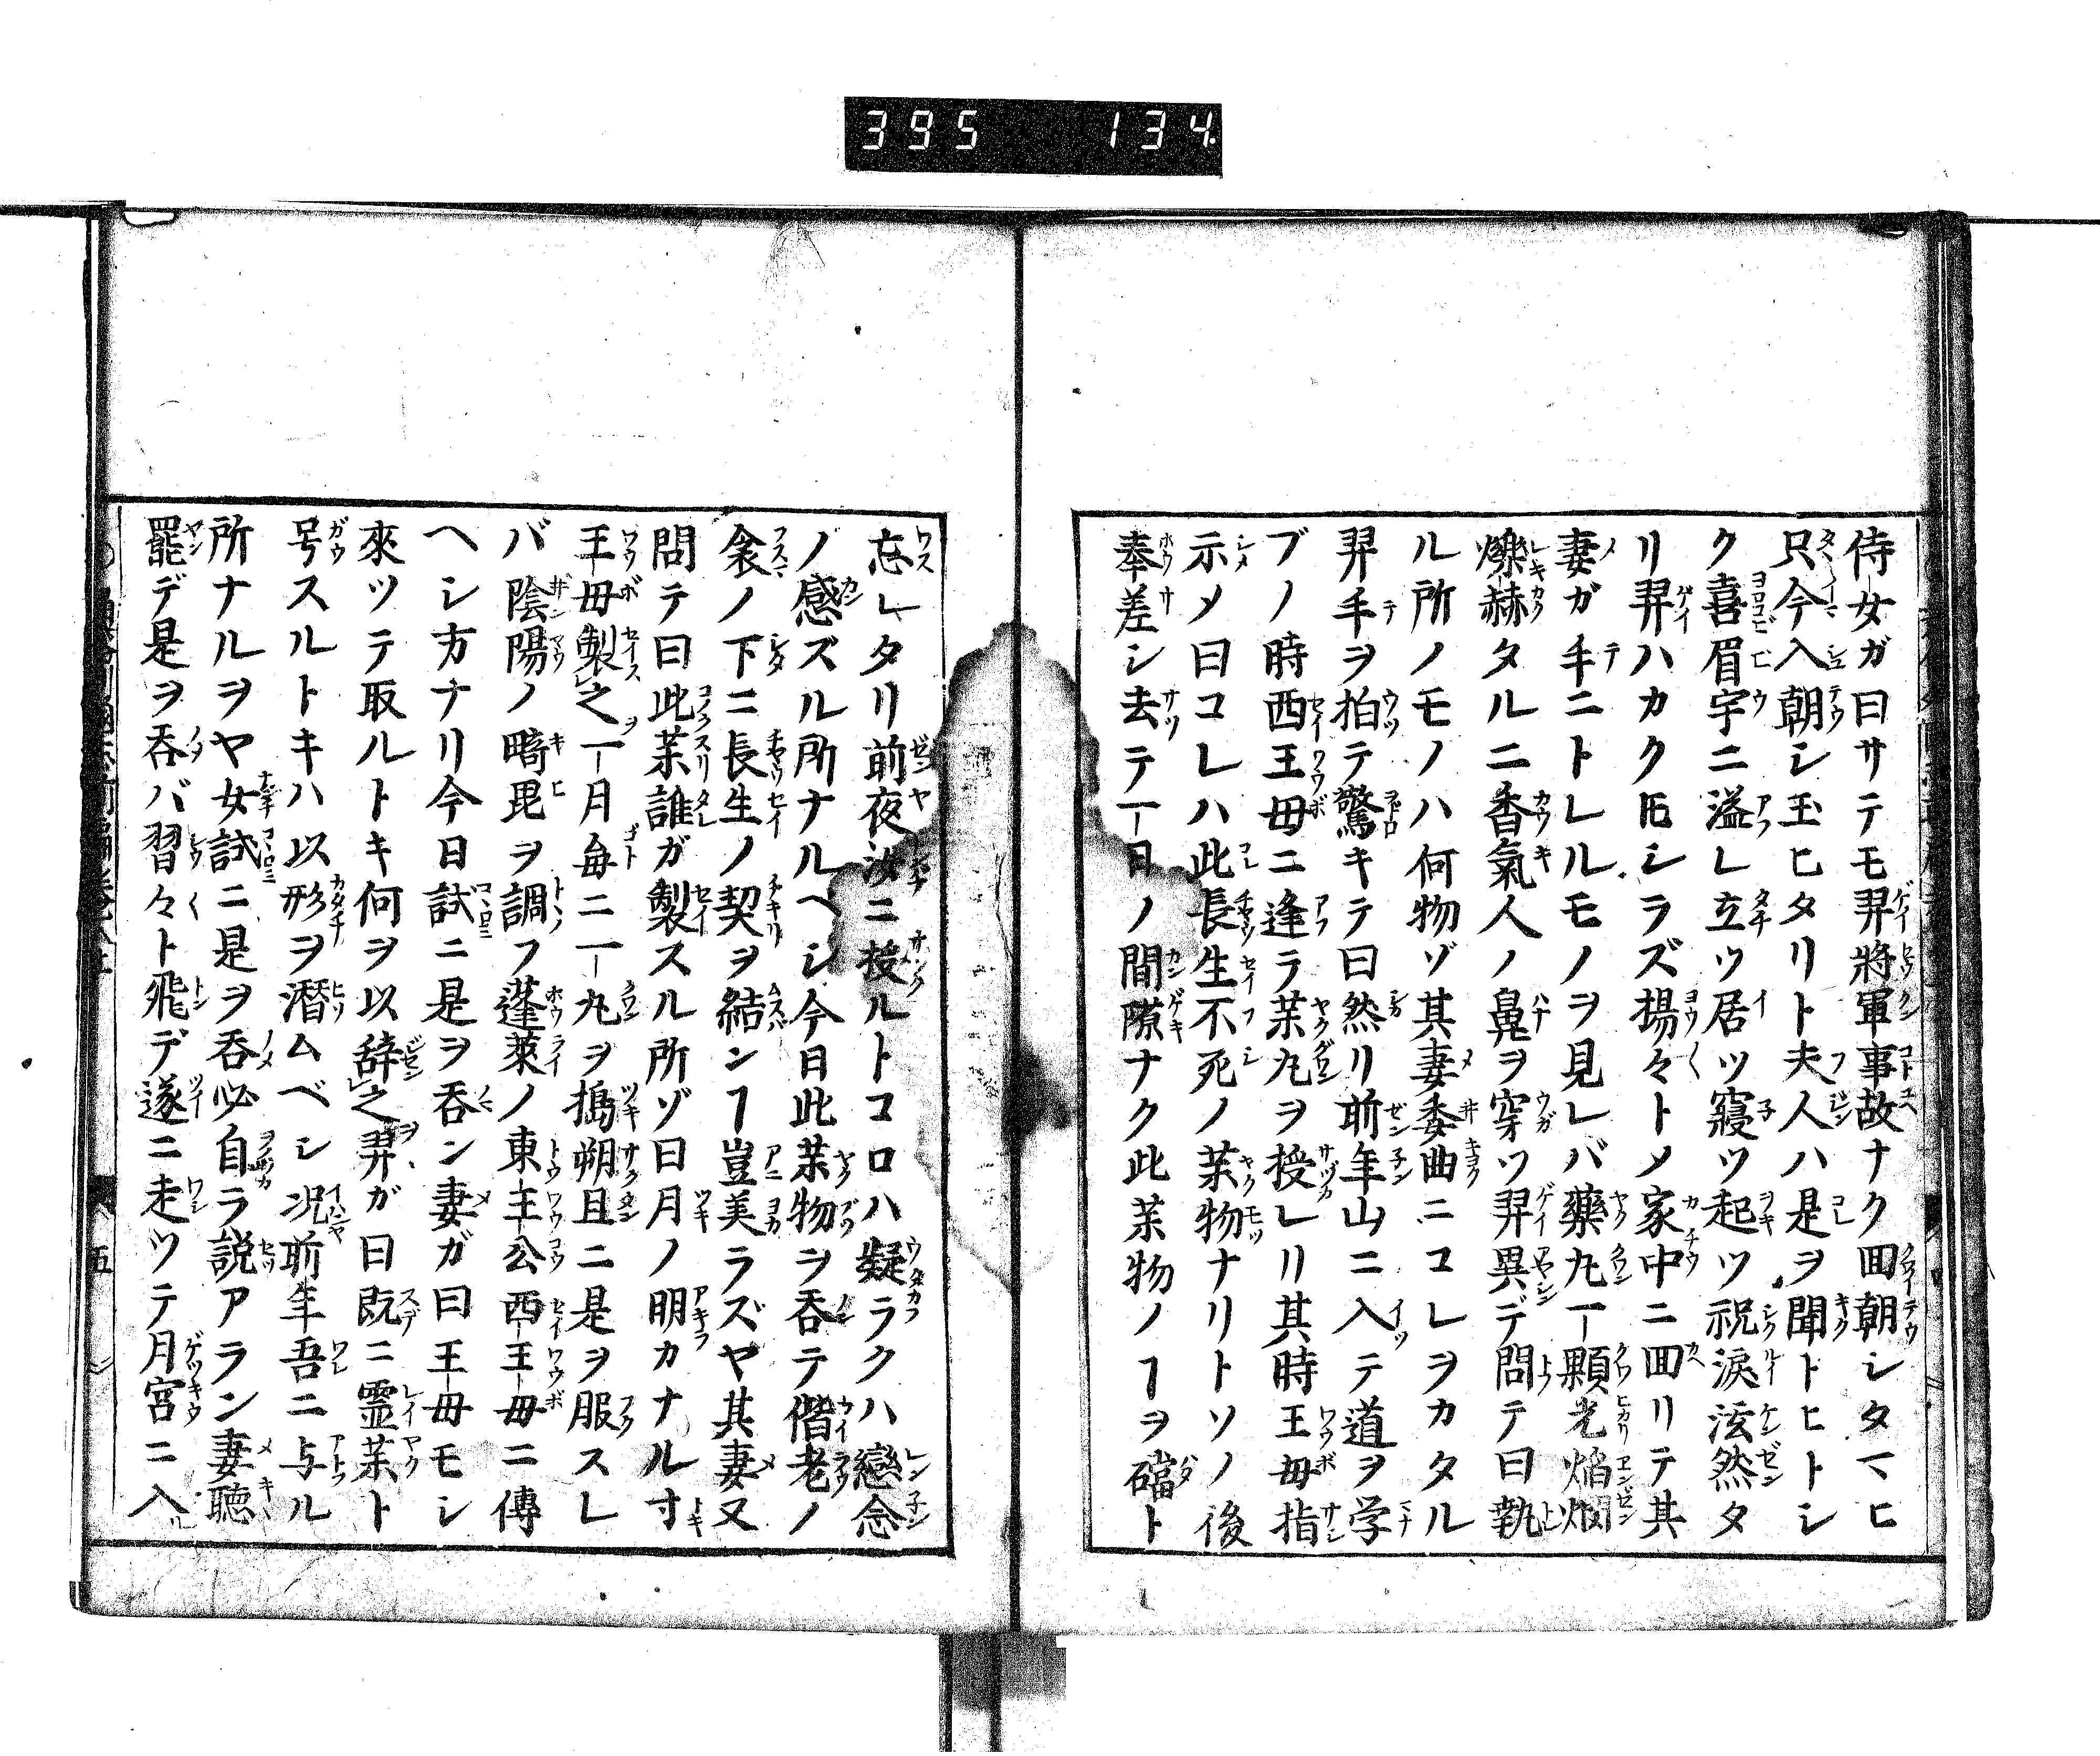 395 134
侍女ガ曰サテモ羿將軍事故ナク囬朝シタマヒ
只今入朝シ玉ヒタリト夫人ハ是ヲ聞トヒトシ
ク喜眉宇ニ溢レ立ツ居ツ寢ツ起ツ祝淚泫然タ
リ羿ハカク𪜈シラズ揚々トメ家中ニ囬リテ其
妻ガ手ニトレルモノヲ見レバ藥丸一顆光焔烱
爍赫タルニ香氣人ノ鼻ヲ穿ツ羿異デ問テ曰執
ル所ノモノハ何物ゾ其妻委曲ニコレヲカタル
羿手ヲ拍テ驚キテ曰然リ前年山ニ入テ道ヲ学
ブノ時西王母ニ逢ラ藥丸ヲ授レリ其時王母指
示メ曰コレハ此長生不死ノ藥物ナリトソノ後
奉差シ去テ一日ノ間隙ナク此藥物ノヿヲ礑ト
忘レタリ前夜汝ニ授ルトコロハ疑ラクハ戀念
ノ感ズル所ナルヘシ今日此藥物ヲ呑テ偕老ノ
衾ノ下ニ長生ノ契ヲ結ンヿ豈美ラズヤ其妻又
問テ曰此藥誰ガ製スル所ゾ曰月ノ明カナル寸
王母製之一月毎ニ一丸ヲ搗朔旦ニ是ヲ服スレ
バ陰陽ノ畸毘ヲ調フ蓬萊ノ東王公西王母ニ傳
ヘシ方ナリ今日試ニ是ヲ呑ン妻ガ曰王母モシ
來ツテ取ルトキ何ヲ以辞之羿ガ曰既ニ霊藥ト
号スルトキハ以形ヲ潛ムベシ况前年吾ニ与ル
所ナルヲヤ女試ニ是ヲ呑必自ラ説アラン妻聴
罷デ是ヲ呑バ習々ト飛デ遂ニ走ツテ月宮ニ入
五